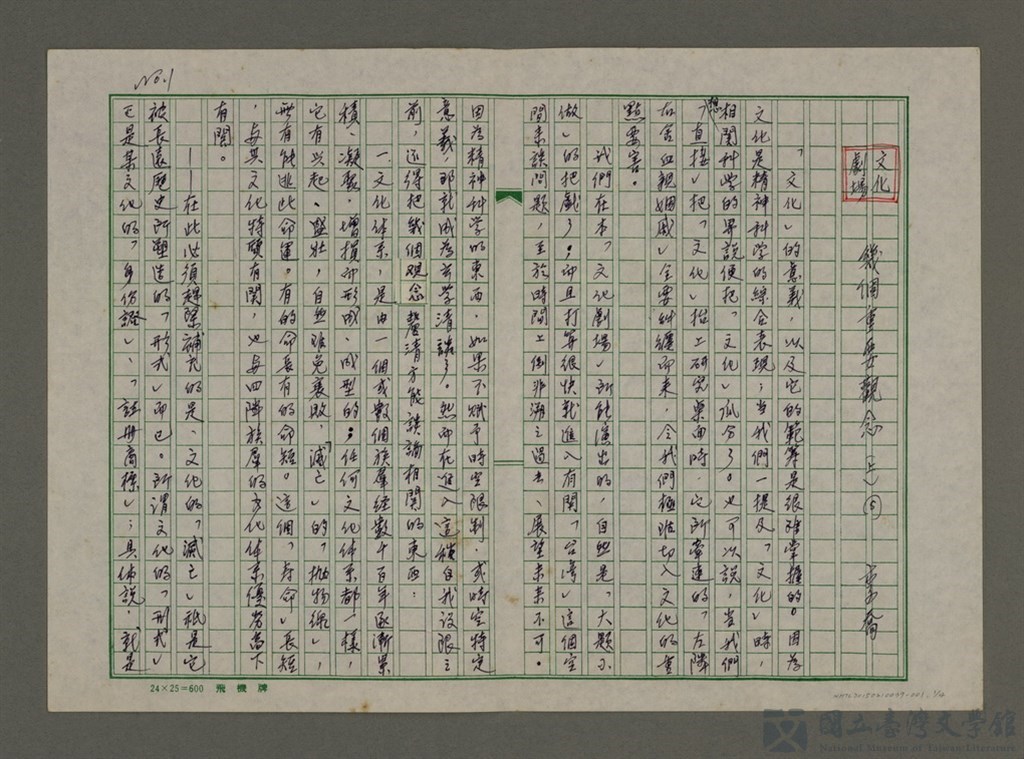 No.1
文化劇場
幾個重要觀念（上）⑤　李喬
「文化」的意義，以及它的範籌是很難掌握的。因為
文化是精神科学的綜合表現；当我們一提及「文化」時，
相関科学的界說便把「文化」瓜分了。也可以說，当我們
想「直接」把「文化」拈上研究桌面時，它所牽連的「左隣
右舍血親姻戚」全要糾纏而來，令我們極难切入文化的重
點要害。
我們在本「文化劇場」所能演出的，自然是「大題小
做」的把戲了；而且打算很快就進入有関「台灣」這個空
間來談問題，至於時間上倒非溯之過去、展望未來不可。
因為精神科学的東西，如果不賦予時空限制，或時空特定
意義，那就成為玄学清談了。然而在進入這種自我設限之
前，还得把幾個观念釐清方能談論相関的東西：
一、文化体系，是由一個或數個族羣經數千百年逐漸累
積、凝聚、增損而形成、成型的；任何文化体系都一樣，
它有兴起、盛壯，自然难免衰敗、「滅亡」的「拋物線」，
無有能逃此命運。有的命長有的命短。這個「寿命」長短
，与其文化特質有関，也与四隣族羣的文化体系優劣高下
有関。
——在此必須趕緊補充的是，文化的「滅亡」祇是它
被長遠歷史所塑造的「形式」而已。所謂文化的「形式」
正是某文化的「身份證」、「註册商標」；具体說，就是
24×25=600 飛機牌
國立臺灣文學館
National Museum of Taiwan Literature